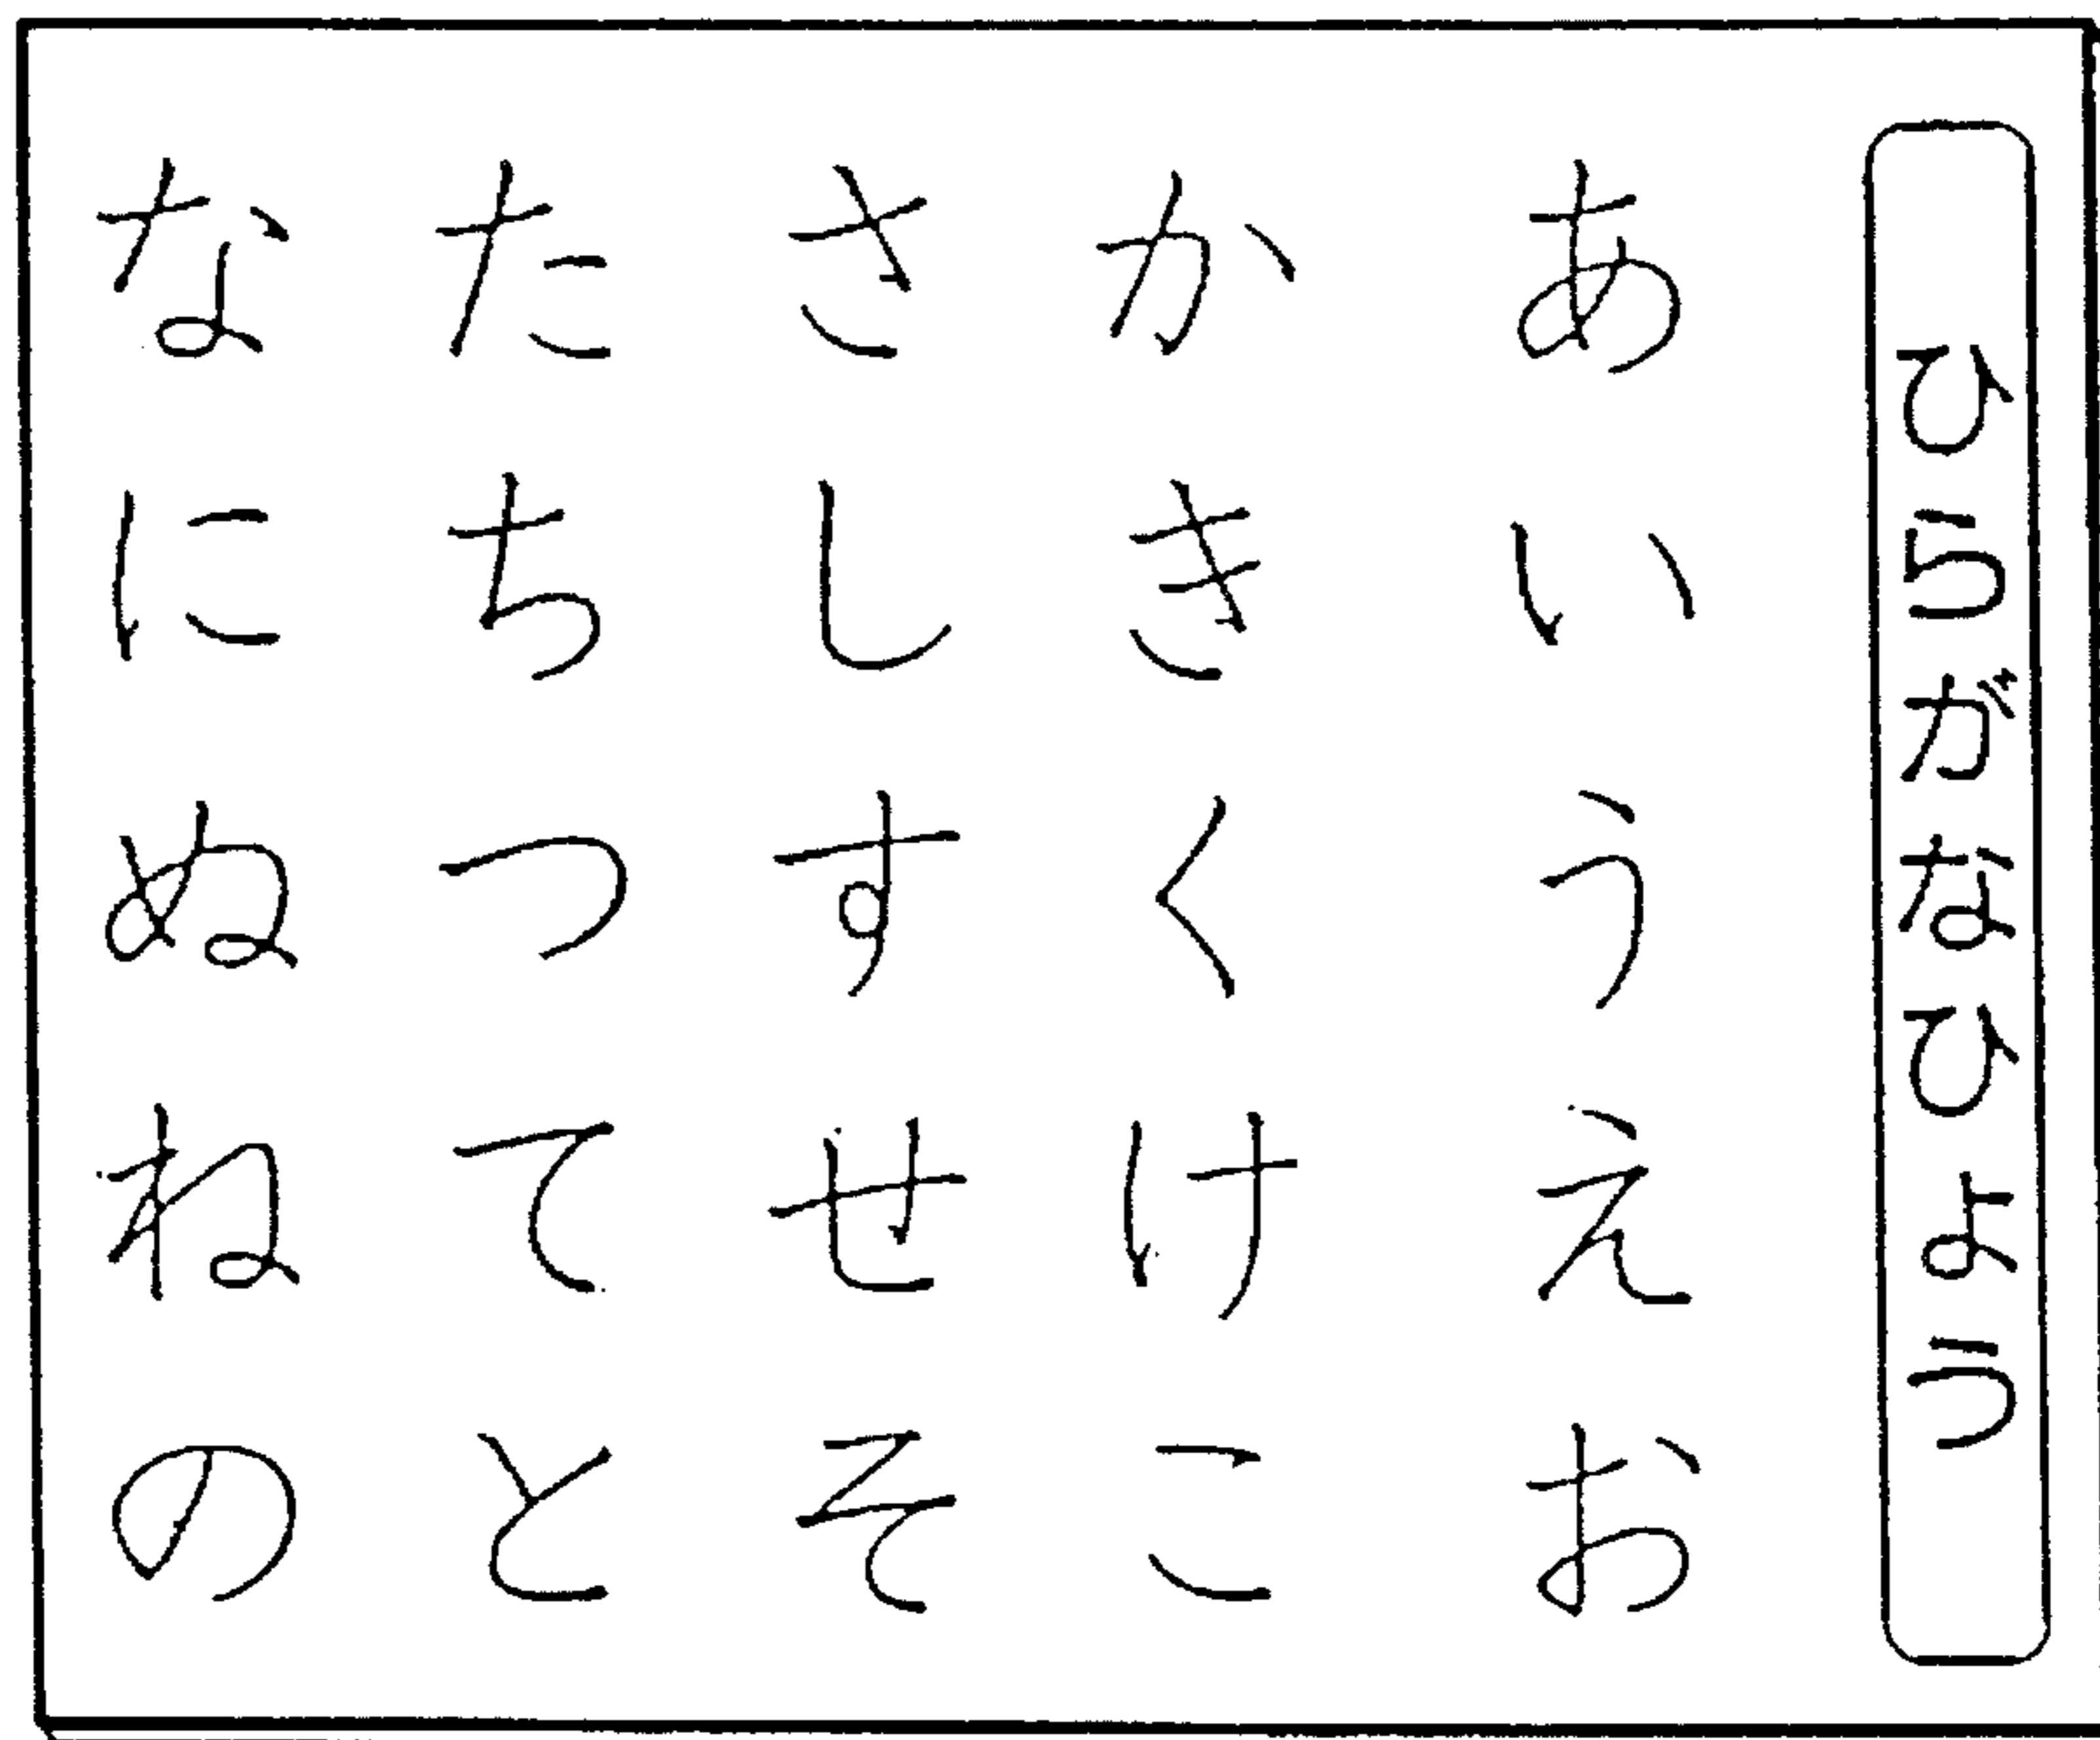 ひらがなひょう
あいうえお
かきくけこ
さしすせそ
たちつてと
なにぬねの